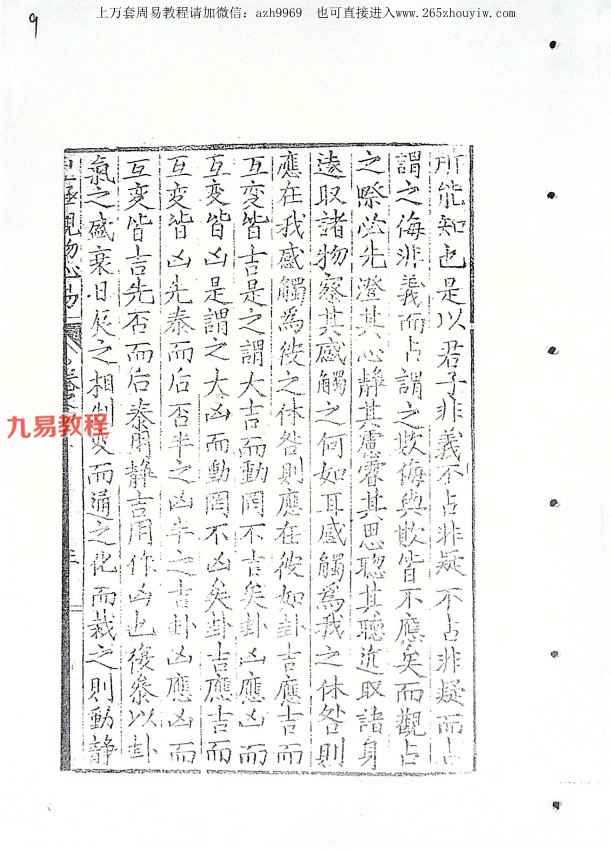 上万套周易教程请加微信：azh9969 也可直接进入www.265zhouyiw.com
9
所能知也是以君子非義不占非疑不占非疑而占
謂之侮非義而占謂之欺侮與欺皆不應矣而觀占
之際必先澄其心靜其慮睿其思聰其聽近取諸身
遠取諸物察其感觸之何如耳感觸為我之休咎則
應在我感觸為彼之休咎則應在彼如卦吉應吉而
互变皆吉是之謂大吉而動罔不吉矣卦凶應凶而
互变皆凶是謂之大凶而動罔不凶矣卦吉應吉而
互变皆凶先泰而后否半之凶半之吉卦凶應凶而
互变皆吉先否而后泰用靜吉用作凶也復叅以卦
氣之盛衰日辰之相制变而通之化而裁之則動静
極觀物
三
九易教程